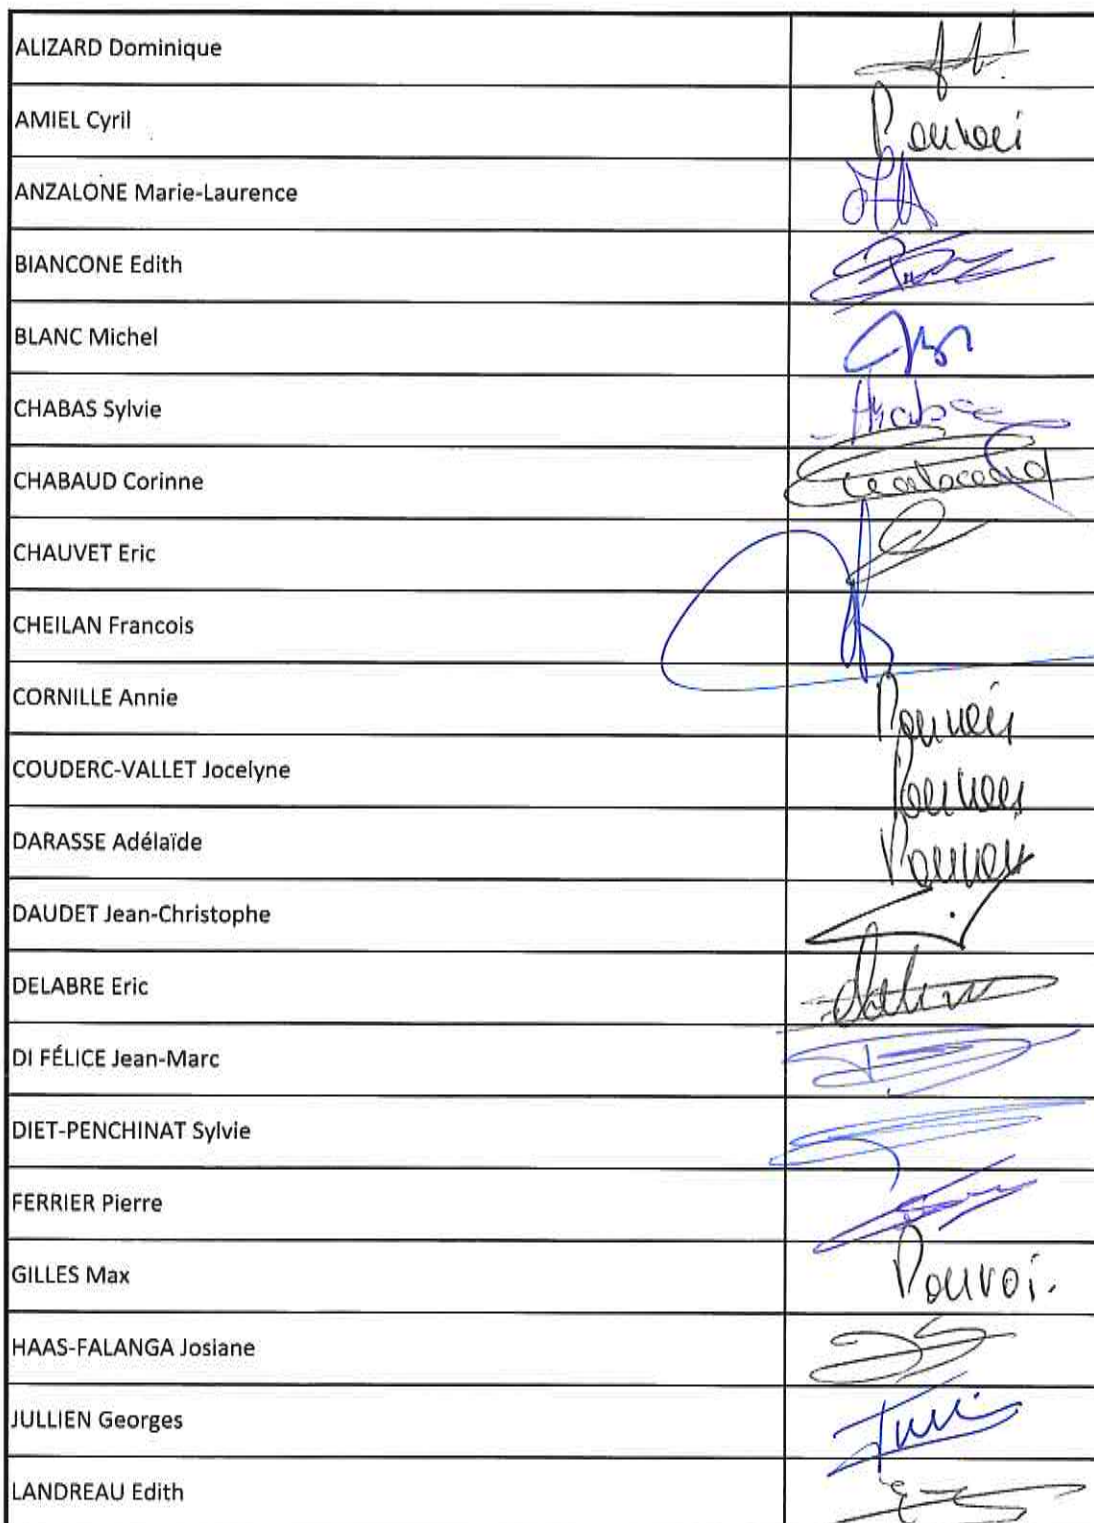 ALIZARD Dominique
AMIEL Cyril Pouvoir
ANZALONE Marie-Laurence
BIANCONE Edith
BLANC Michel
CHABAS Sylvie
CHABAUD Corinne
CHAUVET Eric
CHEILAN Francois
CORNILLE Annie Pouvoir
COUDERC-VALLET Jocelyne Pouvoir
DARASSE Adélaïde Pouvoir
DAUDET Jean-Christophe
DELABRE Eric
DI FÉLICE Jean-Marc
DIET-PENCHINAT Sylvie
FERRIER Pierre
GILLES Max Pouvoi.
HAAS-FALANGA Josiane
JULLIEN Georges
LANDREAU Edith